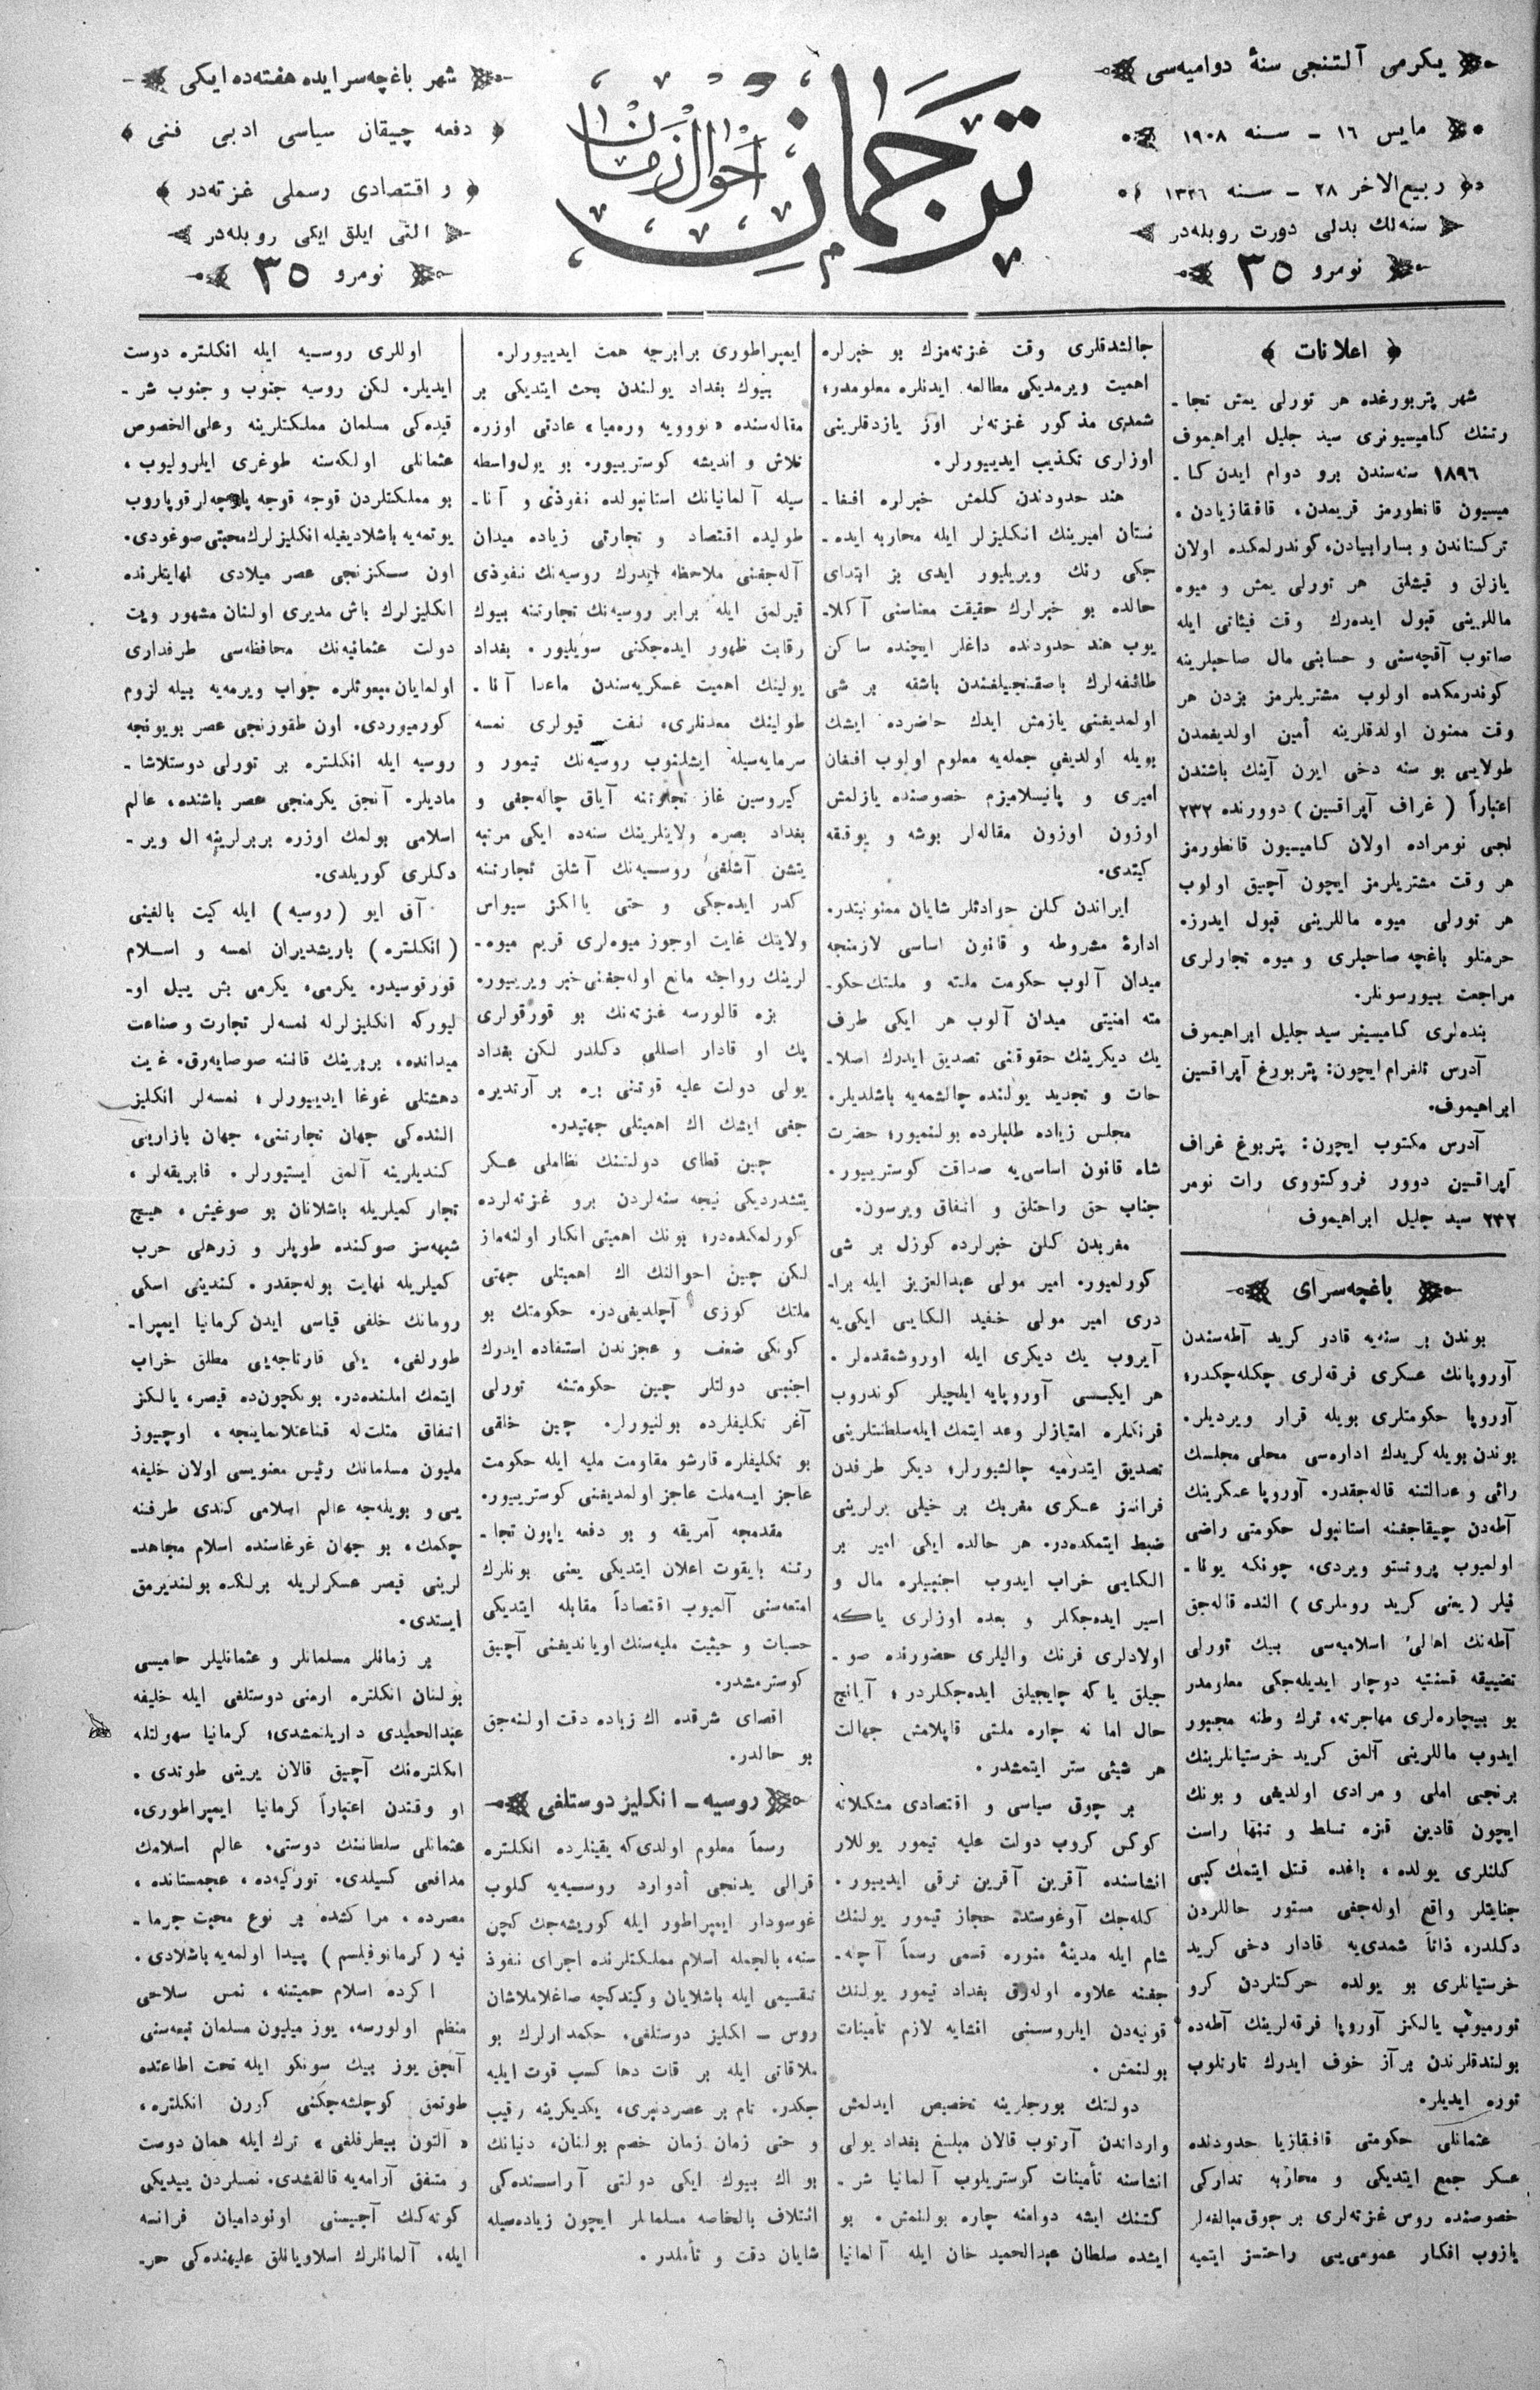 یکرمی آلتنجی سنۀ دوامیه‌سی
مایس ١٦ – سنه ١٩٠٨
ربیع‌الاخر ٢٨ – سنه ١٣٢٦
سنه‌لك بدلی دورت روبله‌در
نومرو ٣٥
ترجمان
احوال زمان
شهر باغچه‌سرایده هفته‌ده ایکی
دفعه چیقان سیاسی ادبی فنی
و اقتصادی رسملی غزته‌در
التی ایلق ایکی روبله‌در
نومرو ٣٥
اعلانات
شهر پتربورغده هر تورلی یمش تجا-
رتنك کامیسیونری سید جلیل ابراهیموف
١٨٩٦ سنه‌سندن برو دوام ایدن کا-
میسیون قانطورمز قریمدن، قافقازیادن،
ترکستاندن و بسارابیادن، کوندرلمکده اولان
یازلق و قیشلق هر تورلی یمش و میوه
ماللرینی قبول ایده‌رك وقت فیئاتی ایله
صاتوب آقچه‌سنی و حسابنی مال صاحبلرینه
کوندرمکده اولوب مشتریلرمز بزدن هر
وقت ممنون اولدقلرینه أمین اولدیغمدن
طولایی بو سنه دخی ایرن آینك باشندن
اعتباراً (غراف آپراقسین) دوورنده ٢٣٢
نجی نومراده اولان کامیسیون قانطورمز
هر وقت مشتریلرمز ایچون آچیق اولوب
هر تورلی میوه ماللرینی قبول ایدرز.
حرمتلو باغچه صاحبلری و میوه تجارلری
مراجعت بیورسونلر.
بنده‌لری کامیسینر سید جلیل ابراهیموف
آدرس تلغرام ایچون: پتربورغ آپراقسین
ابراهیموف.
آدرس مکتوب ایچون: پتربوغ غراف
آپراقسین دوور فروکتووی رات نومر
٢٣٢ سید جلیل ابراهیموف
باغچه‌سرای
بوندن بر سنه‌یه قادر کرید آطه‌سندن
آوروپانك عسکری فرقه‌لری چکله‌چکدر؛
آوروپا حکومتلری بویله قرار ویردیلر.
بوندن بویله کریدك اداره‌سی محلی مجلسك
رائی و عدالتنه قاله‌جقدر. آوروپا عسکرینك
آطه‌دن چیقاجغنه استانبول حکومتی راضی
اولمیوب پروتستو ویردی، چونکه یونا-
نیلر (یعنی کرید روملری) النده قاله‌جق
آطه‌نك اهالیٔ اسلامیه‌سی بیك تورلی
تضییقه قسنتیه دوچار ایدیله‌جکی معلومدر
بو بیچاره‌لری مهاجرته، ترك وطنه مجبور
ایدوب ماللرینی آلمق کرید خرستیانلرینك
برنجی املی و مرادی اولدیغی و بونك
ایچون قادین قیزه تسلط و تنها راست
کلنلری یولده، باغده قتل ایتمك کبی
جنایتلر واقع اوله‌جغی مستور حاللردن
دکلدر. ذاتاً شمدی‌یه قادار دخی کرید
خرستیانلری بو یولده حرکتلردن کرو
تورمیوب یالکز آوروپا فرقه‌لرینك آطه‌ده
بولندقلرندن برآز خوف ایدرك تارتلوب
توره ایدیلر.
عثمانلی حکومتی قافقازیا حدودنده
عسکر جمع ایتدیکی و محاربه تدارکی
خصوصنده روس غزته‌لری بر چوق مبالغه‌لر
یازوب افکار عمومی‌یی راحتسز ایتمیه
جالشدقلری وقت غزته‌مزك بو خبرلره
اهمیت ویرمدیکی مطالعه ایدنلره معلومدر؛
شمدی مذکور غزته‌لر اوز یازدقلرینی
اوزلری تکذیب ایدییورلر.
هند حدودندن کلمش خبرلره افغا-
نستان امیرینك انکلیزلر ایله محاربه ایده-
جکی رنك ویریلیور ایدی بز ابتدای
حالده بو خبرلرك حقیقت معناسنی آکلا-
یوب هند حدودنده داغلر ایچنده ساکن
طائفه‌لرك باصقنجیلغندن باشقه بر شی
اولمدیغنی یازمش ایدك حاضرده ایشك
بویله اولدیغی جمله‌یه معلوم اولوب افغان
امیری و پانیسلامیزم خصوصنده یازلمش
اوزون اوزون مقاله‌لر بوشه و یوققه
کیتدی.
ایراندن کلن حوادثلر شایان ممنونیتدر.
ادارۀ مشروطه و قانون اساسی لازمنجه
میدان آلوب حکومت ملته و ملتك حکو-
مته امنیتی میدان آلوب هر ایکی طرف
یك دیکرینك حقوقنی تصدیق ایدرك اصلا-
حات و تجدید یولنده چالشمه‌یه باشلدیلر.
مجلس زیاده طلبلرده بولنمیور؛ حضرت
شاه قانون اساسی‌یه صداقت کوسترییور.
جناب حق راحتلق و اتفاق ویرسون.
مغربدن کلن خبرلرده کوزل بر شی
کورلمیور. امیر مولی عبدالعزیز ایله برا-
دری امیر مولی حفید الکایی ایکی‌یه
آیروب یك دیکری ایله اوروشمقده‌لر.
هر ایکیسی آوروپایه ایلچیلر کوندروب
فرنکلره امتیازلر وعد ایتمك ایله سلطنتلرینی
تصدیق ایتدرمیه چالشیورلر؛ دیکر طرفدن
فرانسز عسکری مغربك بر خیلی یرلرینی
ضبط ایتمکده‌در. هر حالده ایکی امیر بر
الکایی خراب ایدوب اجنبیلره مال و
اسیر ایده‌جکلر و بعده اوزلری یاکه
اولادلری فرنك والیلری حضورنده صو-
جیلق یاکه چایجیلق ایده‌جکلردر؛ آیانچ
حال اما نه چاره ملتی قاپلامش جهالت
هر شیئی ستر ایتمشدر.
بر چوق سیاسی و اقتصادی مشکلاته
کوکس کروب دولت علیه تیمور یوللار
انشاسنده آقرین آقرین ترقی ایدییور.
کله‌جك آوغوستده حجاز تیمور یولنك
شام ایله مدینۀ منوره قسمی رسماً آچله-
جغنه علاوه اوله‌رق بغداد تیمور یولنك
قونیه‌دن ایلروسنی انشایه لازم تأمینات
بولنمش.
دولتك بورجلرینه تخصیص ایدلمش
وارداندن آرتوب قالان مبلغ بغداد یولی
انشاسنه تأمینات کوستریلوب آلمانیا شر-
کتنك ایشه دوامنه چاره بولنمش. بو
ایشده سلطان عبدالحمید خان ایله آلمانیا
ایمپراطوری برابرجه همت ایدییورلر.
بیوك بغداد یولندن بحث ایتدیکی بر
مقاله‌سنده «نوویه وره‌میا» عادتی اوزره
تلاش و اندیشه کوسترییور. بو یول واسطه
سیله آلمانیانك استانبولده نفوذی و آنا-
طولیده اقتصاد و تجارتی زیاده میدان
آله‌جغنی ملاحظه ایدرك روسیه‌نك نفوذی
قیرلمق ایله برابر روسیه‌نك تجارتنه بیوك
رقابت ظهور ایده‌جکنی سویلیور. بغداد
یولینك اهمیت عسکریه‌سندن ماعدا آنا-
طولینك معدنلری، نفت قیولری نمسه
سرمایه‌سیله ایشلنوب روسیه‌نك تیمور و
کیروسین غاز تجارتنه آیاق چاله‌جغی و
بغداد بصره ولایتلرینك سنه‌ده ایکی مرتبه
یتشن آشلغیٔ روسیه‌نك آشلق تجارتنه
کدر ایده‌جکی و حتی یالکز سیواس
ولایتك غایت اوجوز میوه‌لری قریم میوه-
لرینك رواجنه مانع اوله‌جغنی خبر ویرییور.
بزه قالورسه غزته‌نك بو قورقولری
پك او قادار اصللی دکلدر لکن بغداد
یولی دولت علیه قوتنی بره بر آرتدیره
جغی ایشك اك اهمیتلی جهتیدر.
چین قطای دولتنك نظاملی عسکر
یتشدردیکی نیجه سنه‌لردن برو غزته‌لرده
کورلمکده‌در؛ بونك اهمیتی انکار اولنه‌ماز
لکن چین احوالنك اك اهمیتلی جهتی
ملتك کوزی آچلدیغی‌در. حکومتك بو
کونکی ضعف و عجزندن استفاده ایدرك
اجنبی دولتلر چین حکومتنه تورلی
آغر تکلیفلرده بولنیورلر. چین خلقی
بو تکلیفلره قارشو مقاومت ملیه ایله حکومت
عاجز ایسه ملت عاجز اولمدیغنی کوسترییور.
مقدمجه آمریقه و بو دفعه یاپون تجا-
رتنه بایقوت اعلان ایتدیکی یعنی بونلرك
امتعه‌سنی آلمیوب اقتصاداً مقابله ایتدیکی
حسیات و حیثیت ملیه‌سنك اویاندیغنی آچیق
کوسترمشدر.
اقصای شرقده اك زیاده دقت اولنه‌جق
بو حالدر.
روسیه – انکلیز دوستلغی
رسماً معلوم اولدی‌که یقینلرده انکلتره
قرالی یدنجی أدوارد روسیه‌یه کلوب
غوسودار ایمپراطور ایله کوریشه‌جك کچن
سنه، بالجمله اسلام مملکتلرنده اجرای نفوذ
تقسیمی ایله باشلایان و کیتدکچه صاغلاملاشان
روس – انکلیز دوستلغی، حکمدارلرك بو
ملاقاتی ایله بر قات دها کسب قوت ایلیه
جکدر. تام بر عصردنبری، یکدیکرینه رقیب
و حتی زمان زمان خصم بولنان، دنیانك
بو اك بیوك ایکی دولتی آراسنده‌کی
ائتلاف بالخاصه مسلمانلر ایچون زیاده‌سیله
شایان دقت و تأملدر.
اوللری روسیه ایله انکلتره دوست
ایدیلر. لکن روسیه جنوب و جنوب شر-
قیده‌کی مسلمان مملکتلرینه وعلی‌الخصوص
عثمانلی اولکه‌سنه طوغری ایلرولیوب،
بو مملکتلردن قوجه قوجه پارچه‌لر قوپاروب
یوتمه‌یه باشلادیغیله انکلیزلرك محبتی صوغودی.
اون سکزنجی عصر میلادی نهایتلرنده
انکلیزلرك باش مدیری اولنان مشهور ویت
دولت عثمانیه‌نك محافظه‌سی طرفداری
اولمایان مبعوثلره جواب ویرمه‌یه بیله لزوم
کورمیوردی. اون طقوزنجی عصر بویونجه
روسیه ایله انکلتره بر تورلی دوستلاشا-
مادیلر. آنجق یکرمنجی عصر باشنده، عالم
اسلامی بولمك اوزره بربرلرینه ال ویر-
دکلری کوریلدی.
آق ایو (روسیه) ایله کیت بالغینی
(انکلتره) باریشدیران نمسه و اسلام
قورقوسیدر. یکرمی، یکرمی بش ییل او-
لیورکه انکلیزلرله نمسه‌لر تجارت و صناعت
میدانده، بربرینك قاننه صوصایه‌رق، غایت
دهشتلی غوغا ایدییورلر؛ نمسه‌لر انکلیز
النده‌کی جهان تجارتنی، جهان بازارینی
کندیلرینه آلمق ایستیورلر. فابریقه‌لر،
تجار کمیلریله باشلانان بو صوغیش، هیچ
شبهه‌سز صوکنده طوپلر و زرهلی حرب
کمیلریله نهایت بوله‌جقدر. کندینی اسکی
رومانك خلفی قیاسی ایدن کرمانیا ایمپرا-
طورلغی، یکی قارتاجه‌یی مطلق خراب
ایتمك املنده‌در. بونکچون‌ده قیصر، یالکز
اتفاق مثلث‌له قناعتلانماینجه، اوچیوز
ملیون مسلمانك رئیس معنویسی اولان خلیفه
یی و بویله‌جه عالم اسلامی کندی طرفنه
چکمك، بو جهان غوغاسنده اسلام مجاهد-
لرینی قیصر عسکرلریله برلکده بولندیرمق
ایستدی.
بر زمانلر مسلمانلر و عثمانلیلر حامیسی
بولنان انکلتره ارمنی دوستلغی ایله خلیفه
عبدالحمیدی داریلتمشدی؛ کرمانیا سهولتله
انکلتره‌نك آچیق قالان یرینی طوتدی.
او وقتدن اعتباراً کرمانیا ایمپراطوری،
عثمانلی سلطاننك دوستی، عالم اسلامك
مدافعی کسیلدی. تورکیه‌ده، عجمستانده،
مصرده، مراکشده بر نوع محبت جرما-
نیه (کرمانوفیلسم) پیدا اولمه‌یه باشلادی.
اکرده اسلام حمیتنه، نمس سلاحی
منظم اولورسه، یوز میلیون مسلمان تبعه‌سنی
آنجق یوز بیك سونکو ایله تحت اطاعتده
طوتمق کوچلشه‌جکنی کورن انکلتره،
«آلتون بیطرفلغی» ترك ایله همان دوست
و متفق آرامه‌یه قالقشدی. نمسلردن ییدیکی
کوته‌کك آجیسنی اونودامیان فرانسه
ایله، آلمانلرك اسلاویانلق علیهنده‌کی حر-